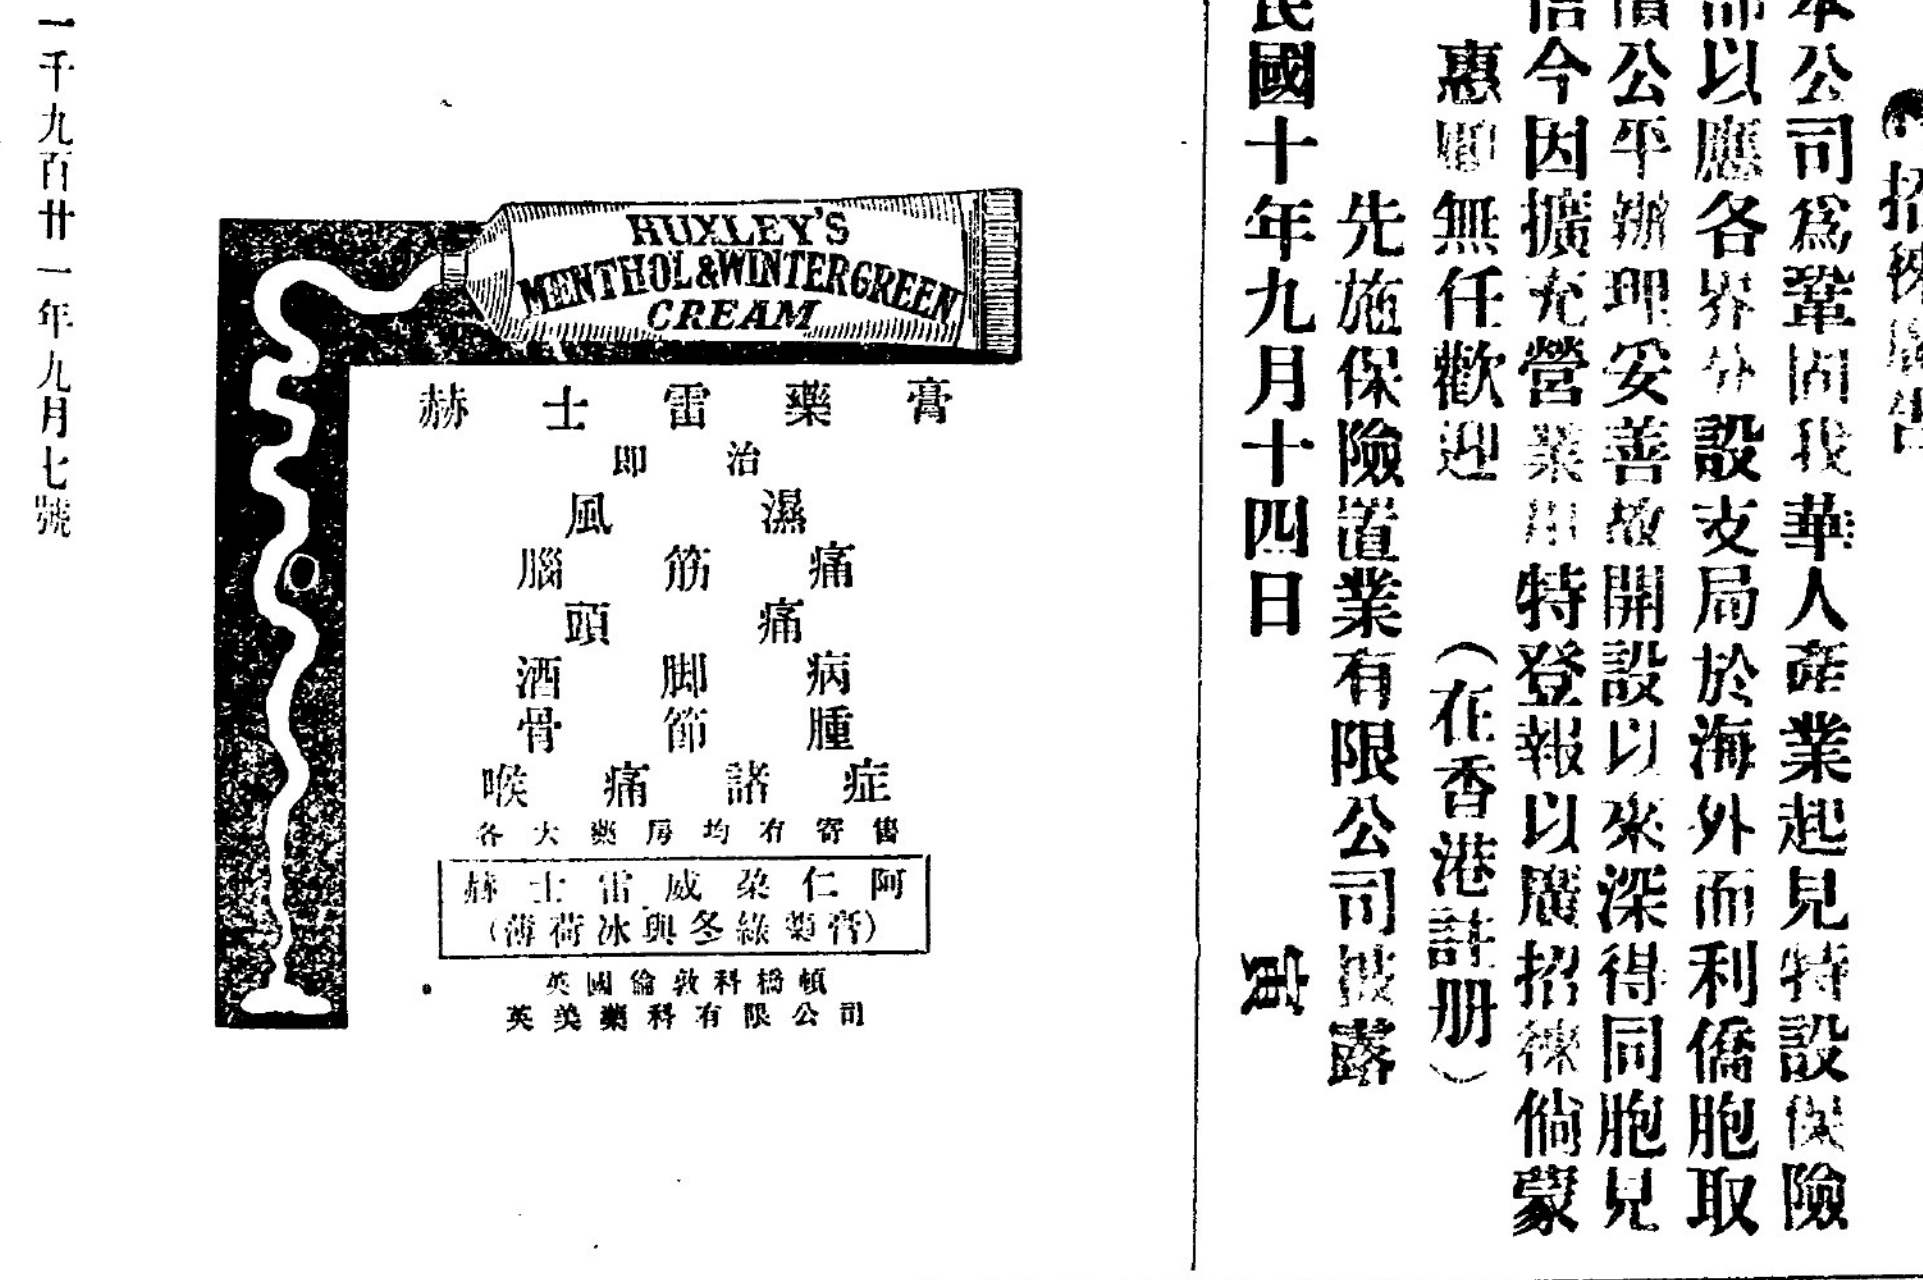 本公司為鞏固我華人產業起見特設保險
部以應各界外設支局於海外而利僑胞取
價公平辦理安善故開設以來深得同胞見
信今因擴充營業用特登報以廣招徠倘蒙
惠顧無任歡迎
(在香港註册)
先施保險置業有限公司披露
民國十年九月十四日
HUXLEY'S
MENTHOL & WINTERGREEN
CREAM
赫士雷藥膏
即治
風濕
腦筋痛
頭痛
酒脚病
骨節腫
喉痛諸症
各大藥房均有寄售
赫士雷威槑仁阿
(薄荷冰與冬綠藥膏)
英國倫敦科橋頓
英美藥科有限公司
一千九百廿一年九月七號